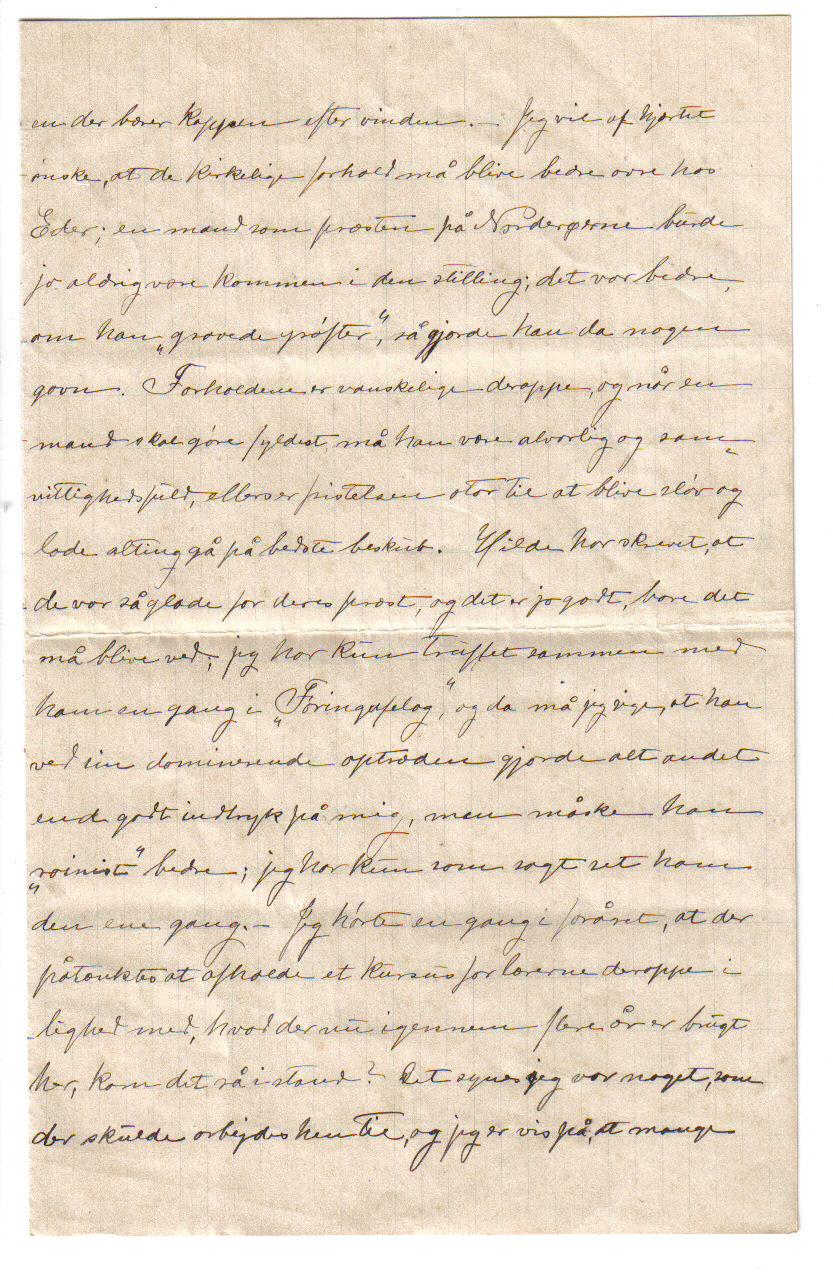 en der bærer kappen efter vinden. – Jeg vil af hjærtet
ønske, at de kirkelige forhold må blive bedre ovre hos
Eder; en mand som præsten på Nordøerne burde
jo aldrig være kommen i den stilling; det var bedre,
om han „gravede grøfter“, så gjorde han da nogen
gavn. Forholdene er vanskelige deroppe, og når en
mand skal gøre fyldest, må han være alvorlig og sam-
vittighedsfuld, ellers er fristelsen stor til at blive sløv og
lade alting gå på bedste beskub. Hilda har skrevet, at
de var så glade for deres præst, og det er jo godt, bare det
må blive ved; jeg har kun truffet sammen med
ham en gang i „Føringafelag“, og da må jeg sige, at han
ved sin dominerende optræden gjorde alt andet
end godt indtryk på mig, men måske han
„roinist“ bedre; jeg har kun som sagt set ham
den ene gang. – Jeg hørte en gang i foråret, at der
påtænktes at afholde et kursus for lærerne deroppe i
lighed med, hvad der nu igennem flere år er brugt
her, kom det så i stand? Det synes jeg var noget, som
der skulde arbejdes hen til, og jeg er vis på, at mange